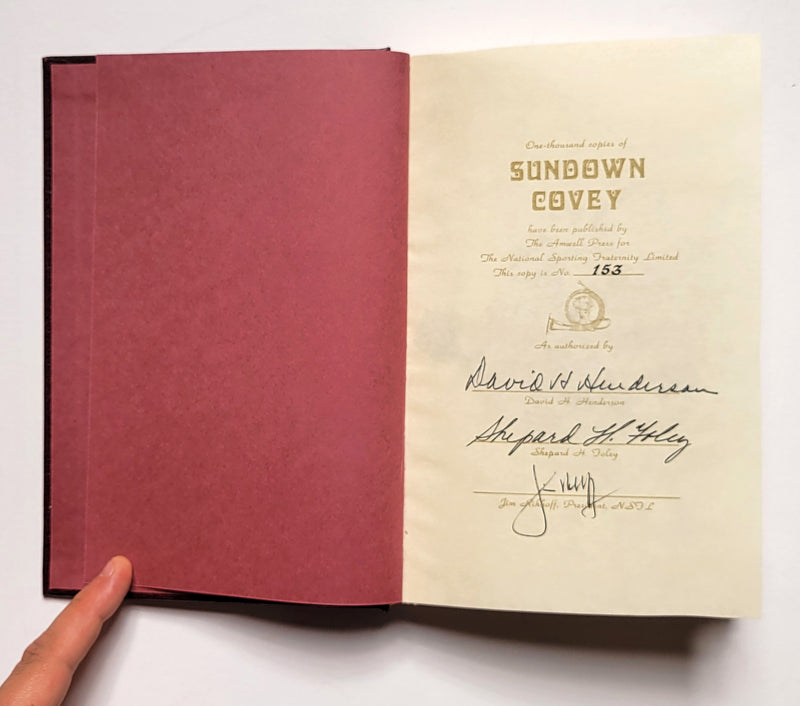 One-thousand copies of
SUNDOWN
COVEY
have been published by
The Amwell Press for
The National Sporting Fraternity Limited
This copy is No. 153
As authorized by
David H Henderson
David H. Henderson
Shepard H. Foley
Shepard H. Foley
Jim Rikhoff, President, NSFL